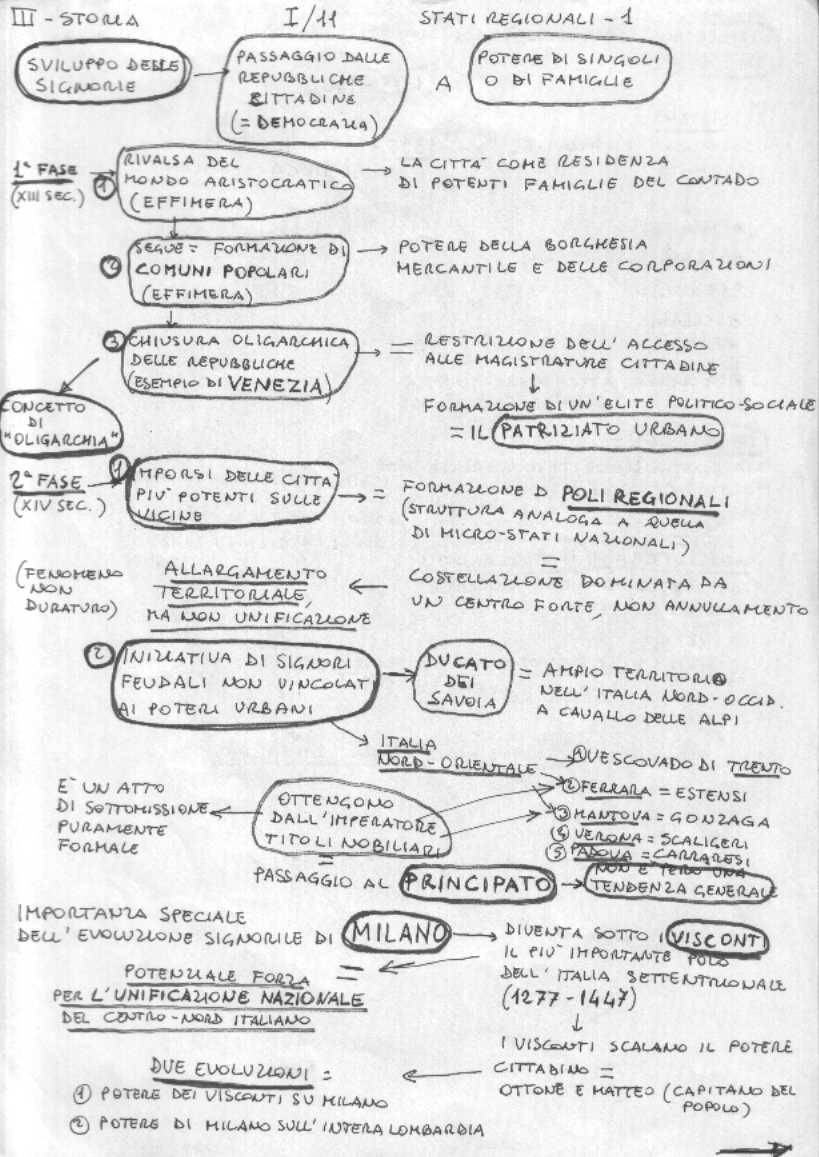 III - STORIA I/11 STATI REGIONALI - 1
SVILUPPO DELLE
SIGNORIE
PASSAGGIO DALLE
REPUBBLICHE
CITTADINE
(= DEMOCRAZIA)
A
POTERE DI SINGOLI
O DI FAMIGLIE
1ª FASE
(XIII SEC.)
1 RIVALSA DEL
MONDO ARISTOCRATICO
(EFFIMERA)
LA CITTA' COME RESIDENZA
DI POTENTI FAMIGLIE DEL CONTADO
2 SEGUE = FORMAZIONE DI
COMUNI POPOLARI
(EFFIMERA)
POTERE DELLA BORGHESIA
MERCANTILE E DELLE CORPORAZIONI
3 CHIUSURA OLIGARCHICA
DELLE REPUBBLICHE
(ESEMPIO DI VENEZIA)
= RESTRIZIONE DELL'ACCESSO
ALLE MAGISTRATURE CITTADINE
FORMAZIONE DI UN'ELITE POLITICO-SOCIALE
= IL PATRIZIATO URBANO
CONCETTO
DI
"OLIGARCHIA"
2ª FASE
(XIV SEC.)
1 IMPORSI DELLE CITTA'
PIU' POTENTI SULLE
VICINE
= FORMAZIONE D POLI REGIONALI
(STRUTTURA ANALOGA A QUELLA
DI MICRO-STATI NAZIONALI)
=
COSTELLAZIONE DOMINATA DA
UN CENTRO FORTE, NON ANNULLAMENTO
ALLARGAMENTO
TERRITORIALE,
MA NON UNIFICAZIONE
(FENOMENO
NON
DURATURO)
2 INIZIATIVA DI SIGNORI
FEUDALI NON VINCOLATI
AI POTERI URBANI
DUCATO
DEI
SAVOIA
= AMPIO TERRITORIO
NELL'ITALIA NORD-OCCID.
A CAVALLO DELLE ALPI
ITALIA
NORD-ORIENTALE
1 VESCOVADO DI TRENTO
2 FERRARA = ESTENSI
3 MANTOVA = GONZAGA
4 VERONA = SCALIGERI
5 PADOVA = CARRARESI
OTTENGONO
DALL'IMPERATORE
TITOLI NOBILIARI
E' UN ATTO
DI SOTTOMISSIONE
PURAMENTE
FORMALE
=
PASSAGGIO AL PRINCIPATO
NON E' PERO' UNA
TENDENZA GENERALE
IMPORTANZA SPECIALE
DELL'EVOLUZIONE SIGNORILE DI MILANO
DIVENTA SOTTO I VISCONTI
IL PIU' IMPORTANTE POLO
DELL'ITALIA SETTENTRIONALE
(1277-1447)
=
POTENZIALE FORZA
PER L'UNIFICAZIONE NAZIONALE
DEL CENTRO-NORD ITALIANO
I VISCONTI SCALANO IL POTERE
CITTADINO =
OTTONE E MATTEO (CAPITANO DEL
POPOLO)
DUE EVOLUZIONI =
1 POTERE DEI VISCONTI SU MILANO
2 POTERE DI MILANO SULL'INTERA LOMBARDIA